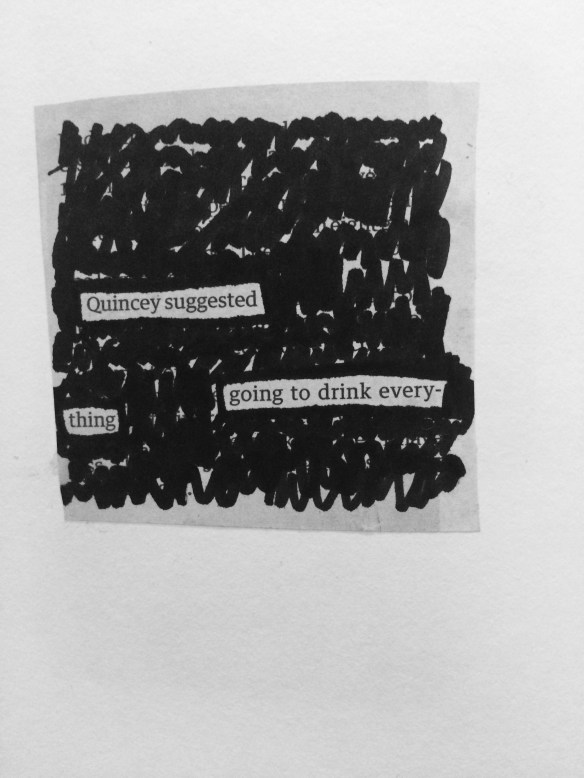 Quincey suggested
going to drink every-
thing